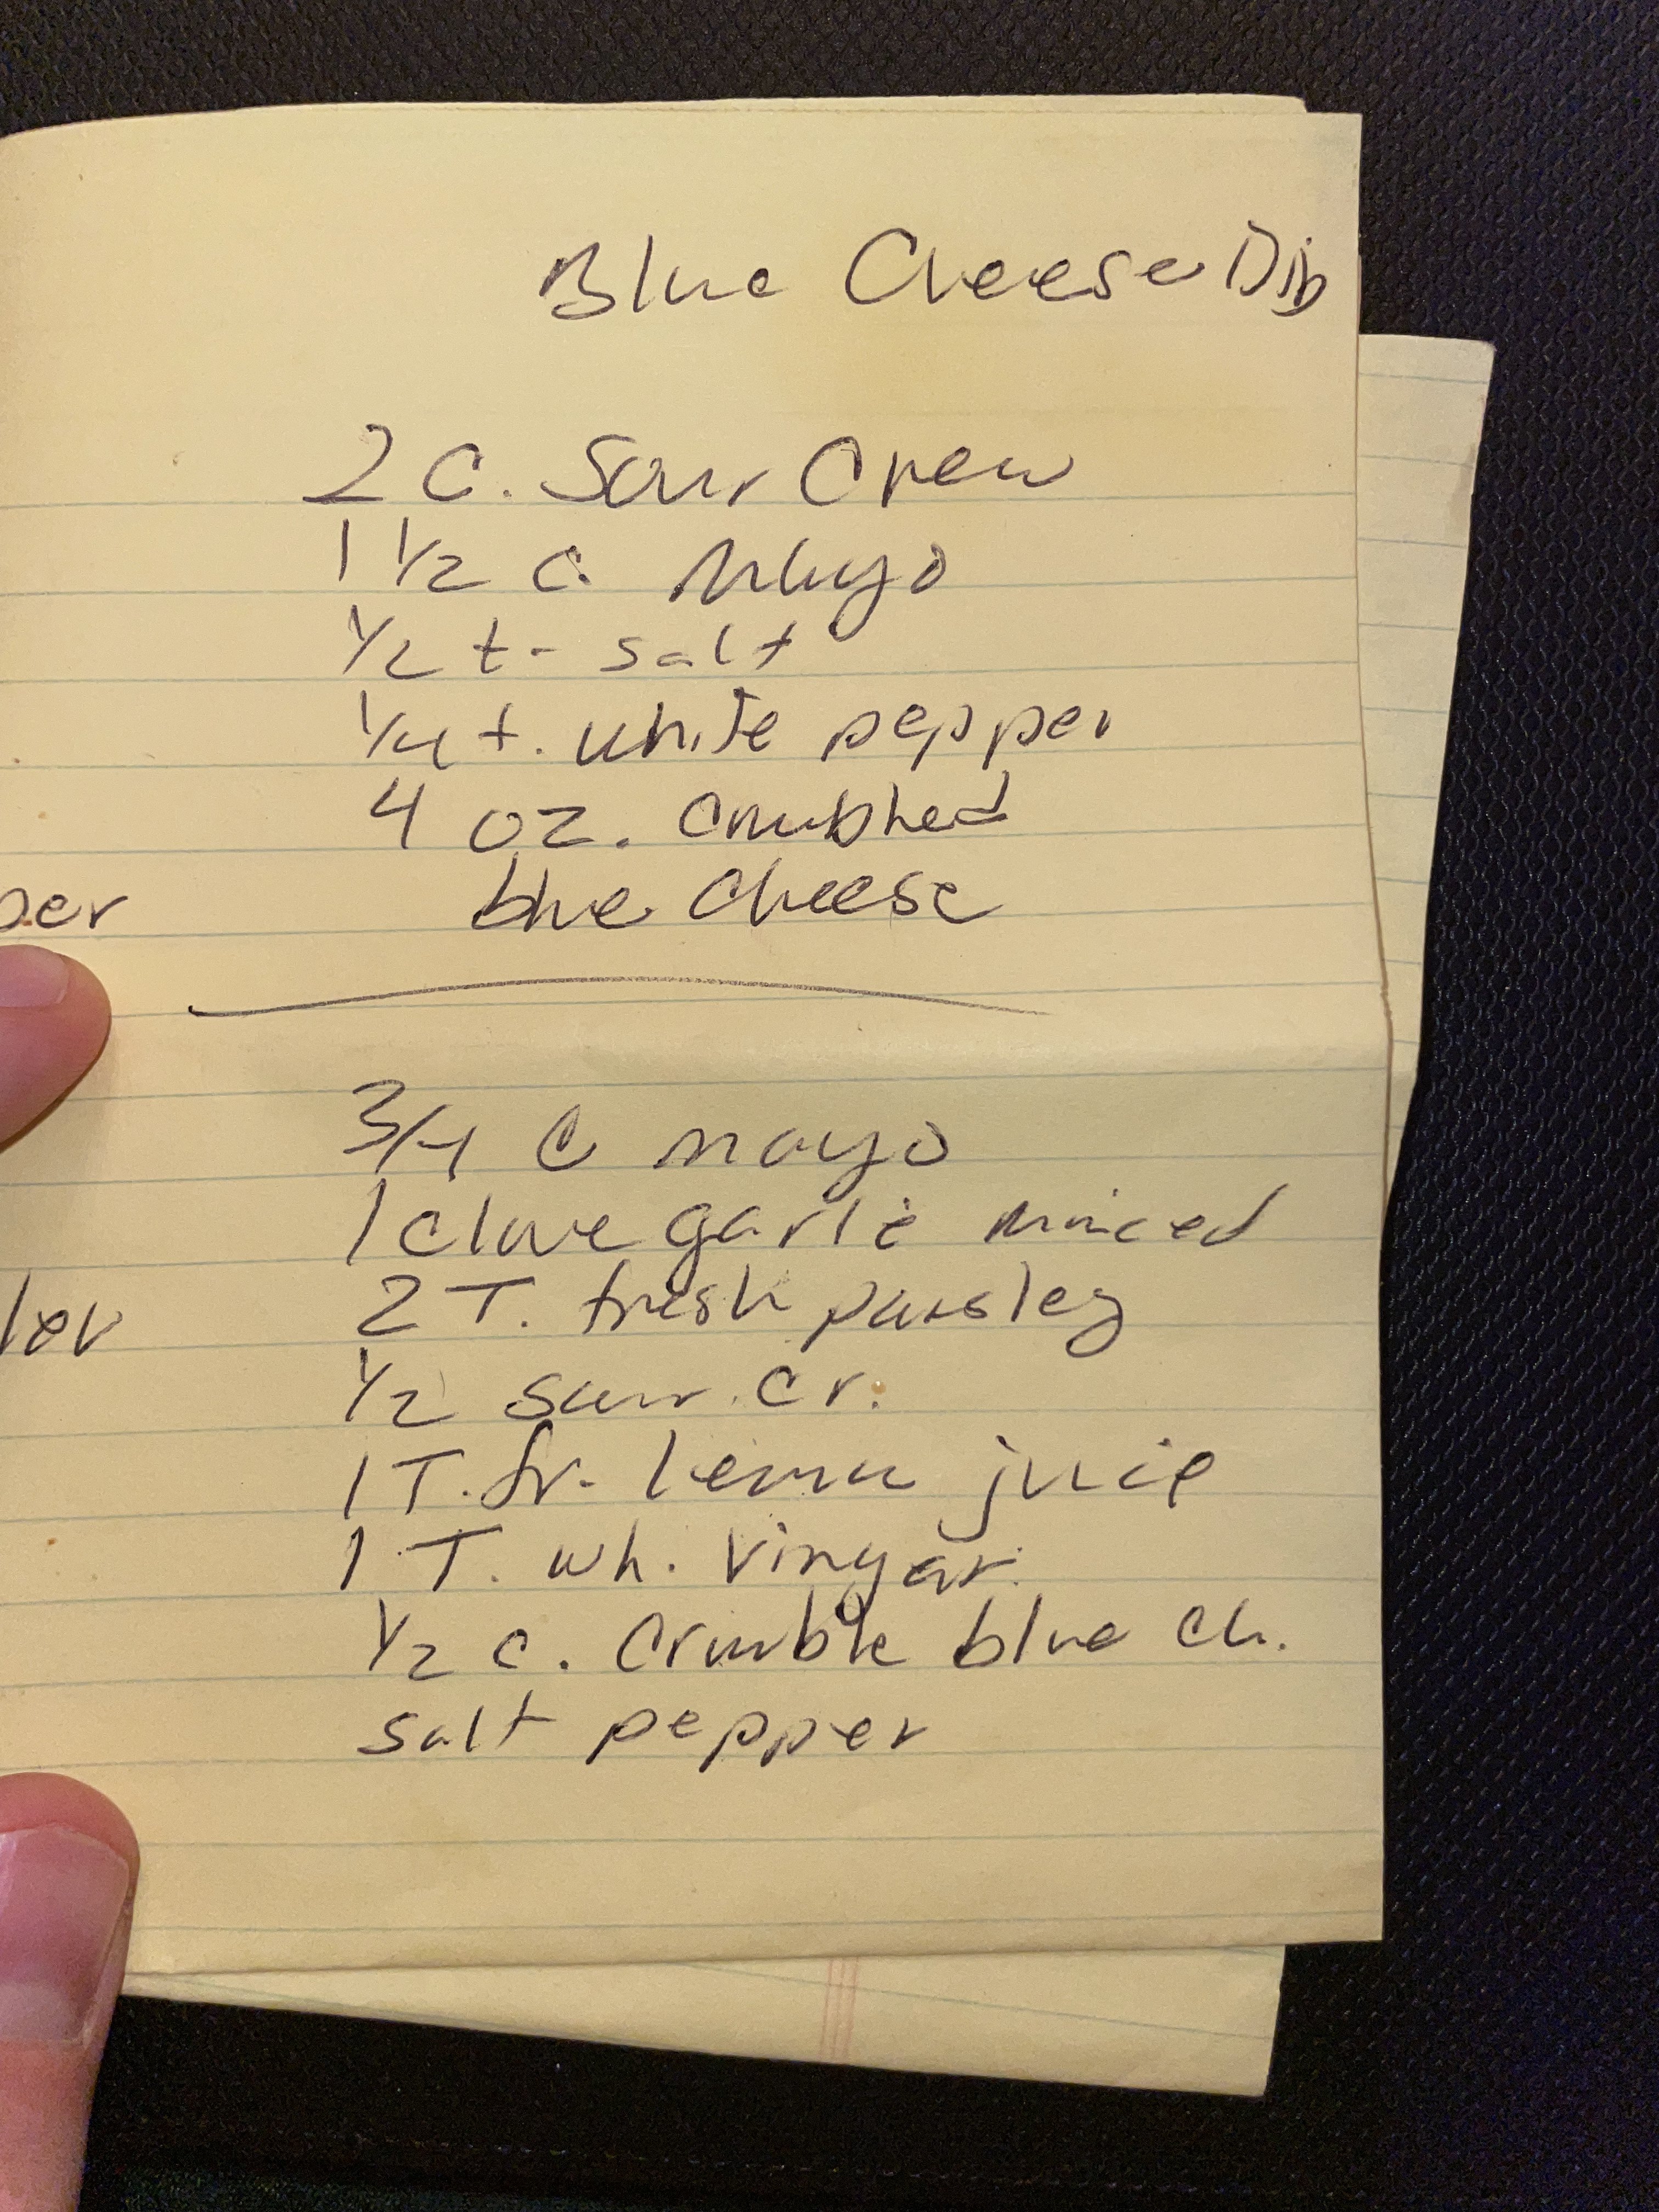 Blue Cheese Dip
2 C. Sour Cream
1 1/2 c. Mayo
1/2 t. salt
1/4 t. white pepper
4 oz. Crumbled
blue Cheese
per
3/4 C mayo
1 clove garlic minced
2 T. fresh parsley
1/2 sour cr.
1 T. fr. lemon juice
1 T. wh. Vinyar
1/2 c. Crumble blue ch.
salt pepper